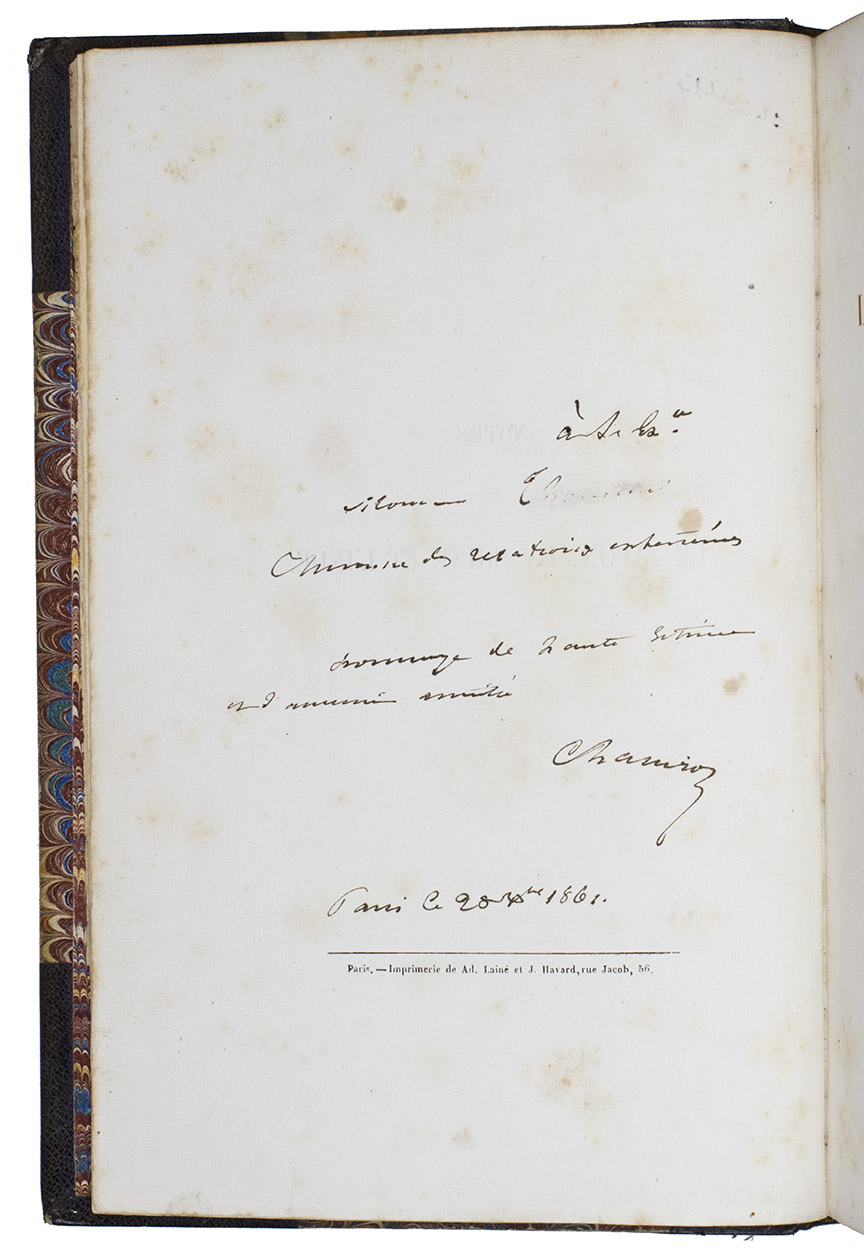 à Son Ex.ce
Monsieur Thouvenel
Ministre des relations extérieures
hommage de haute Estime
et d'ancienne amitié
Paris le 28 Xbre 1861.
Paris. — Imprimerie de Ad. Lainé et J. Havard, rue Jacob, 56.